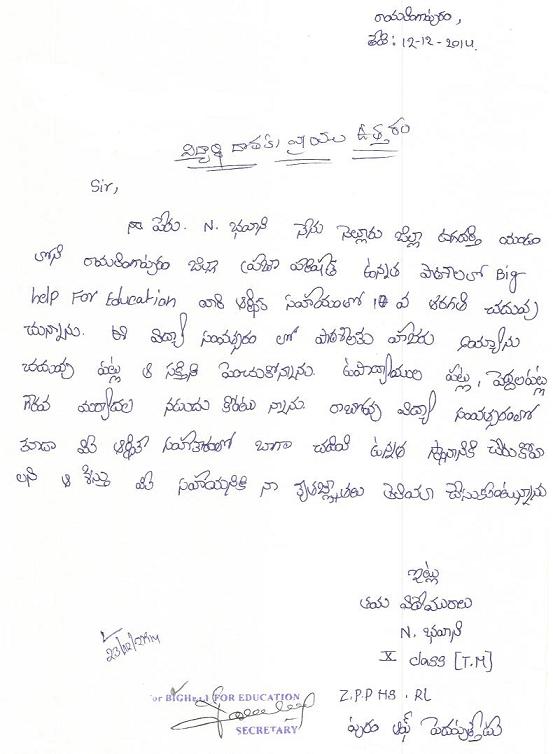 రామలింగాపురం,
తేది: 12-12-2014.
విద్యార్థి దాతకు వ్రాయు ఉత్తరం
Sir,
నా పేరు. N. భవాని నేను నెల్లూరు జిల్లా దగదర్తి మండం
లోని రామలింగాపురం జిల్లా ప్రజా పరిషత్ ఉన్నత పాఠశాలలో Big
help For Education వారి ఆర్థిక సహాయంలో 10 వ తరగతి చదువు
చున్నాను. ఈ విద్యా సంవత్సరం లో పాఠశాలకు హాజరు అయ్యాను
చదువు పట్ల ఆ సక్తిని పెంచుకోన్నాను. ఉపాద్యాయుల పట్ల, పెద్దలపట్ల
గౌరవ మర్యాదలు నడుచు కొంటు న్నాను. రాబోవు విద్యా సంవత్సరంలో
కూడా మీ ఆర్థిక సహకారంలో బాగా చదివి ఉన్నత స్థానానికి చేరుకోవా
లని ఆ శిస్తు మీ సహాయనికి నా కృతజ్ఞతలు తెలియా చేసుకుంటున్నాను
ఇట్లు
తమ విధేయురాలు
N. భవాని
X class [T.M]
Z.P.P HS. RL
పురం
23/12/2014
For BIGHELP FOR EDUCATION
SECRETARY